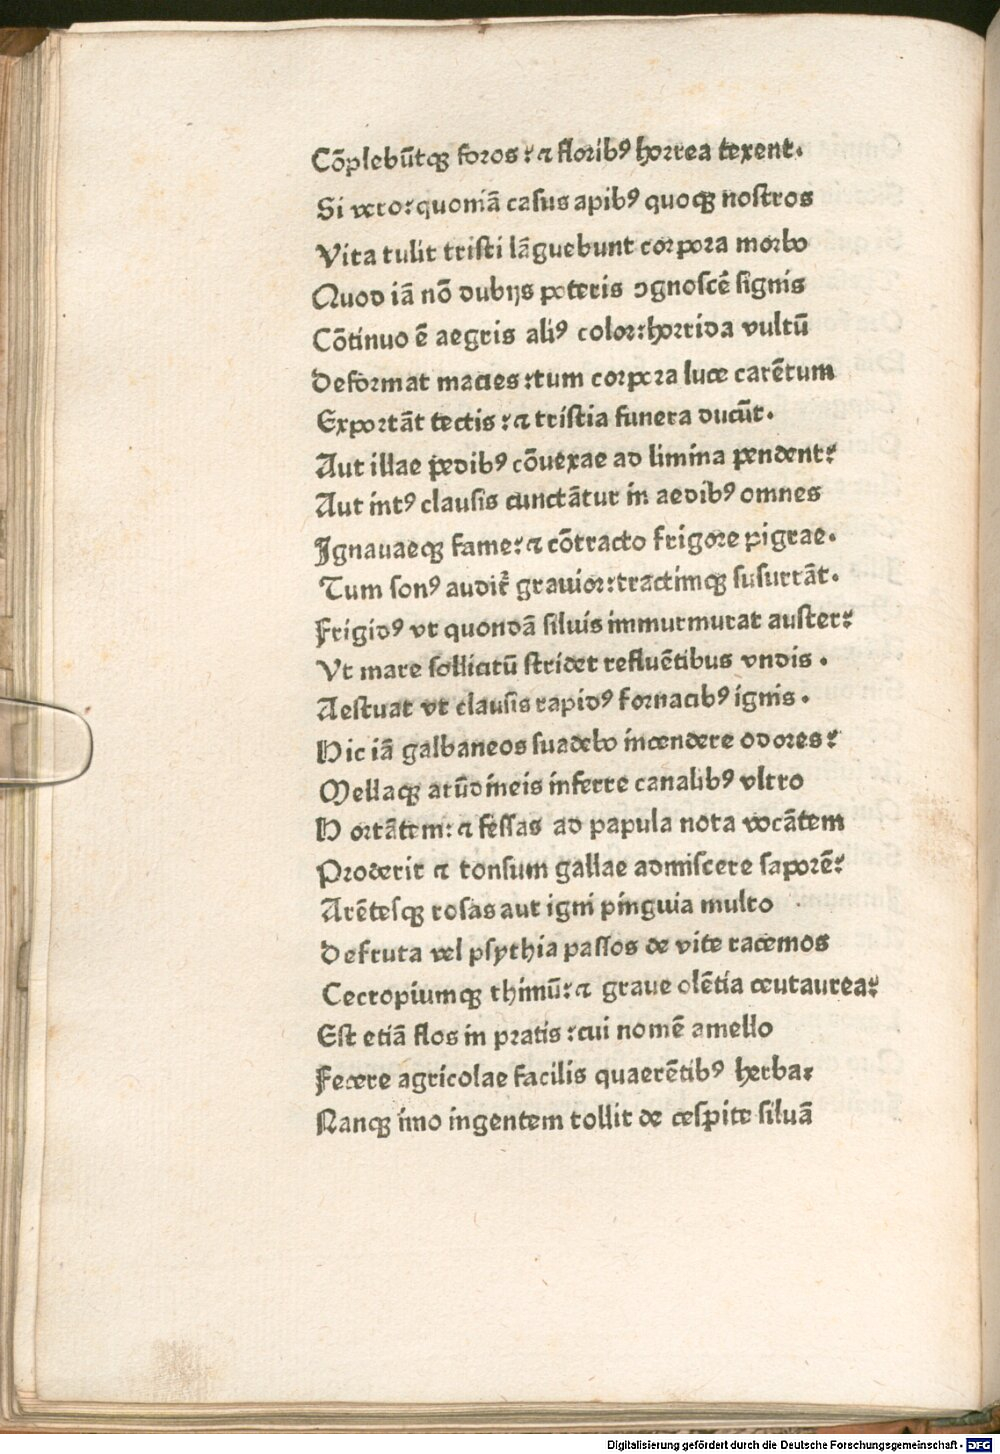 Cõplebũtqꝫ foros : ⁊ floribꝰ horrea texent.
Si vero : quoniã casus apibꝰ quoqꝫ nostros
Vita tulit tristi lãguebunt corpora morbo
Quod iã nõ dubijs poteris ↄgnoscẽ signis
Cõtinuo ẽ aegris aliꝰ color : horrida vultũ
Deformat macies : tum corpora luce carẽtum
Exportãt tectis : ⁊ tristia funera ducũt.
Aut illae pedibꝰ cõuexae ad limina pendent :
Aut intꝰ clausis cunctãtur in aedibꝰ omnes
Ignauaeqꝫ fame : ⁊ cõtracto frigore pigrae.
Tum sonꝰ audit̃ grauior : tractimqꝫ susurrãt.
Frigidꝰ vt quondã siluis immurmurat auster :
Vt mare sollicitũ stridet refluẽtibus vndis .
Aestuat vt clausis rapidꝰ fornacibꝰ ignis .
Hic iã galbaneos suadebo incendere odores :
Mellaqꝫ arũdineis inferre canalibꝰ vltro
Hortãtem : ⁊ fessas ad papula nota vocãtem
Proderit ⁊ tonsum gallae admiscere saporẽ :
Arẽtesqꝫ rosas aut igni pinguia multo
Defruta vel psythia passos de vite racemos
Cecropiumqꝫ thimũ : ⁊ graue olẽtia ceutaurea :
Est etiã flos in pratis : cui nomẽ amello
Fecere agricolae facilis quaerẽtibꝰ herba :
Nanqꝫ imo ingentem tollit de cespite siluã
Digitalisierung gefördert durch die Deutsche Forschungsgemeinschaft - DFG